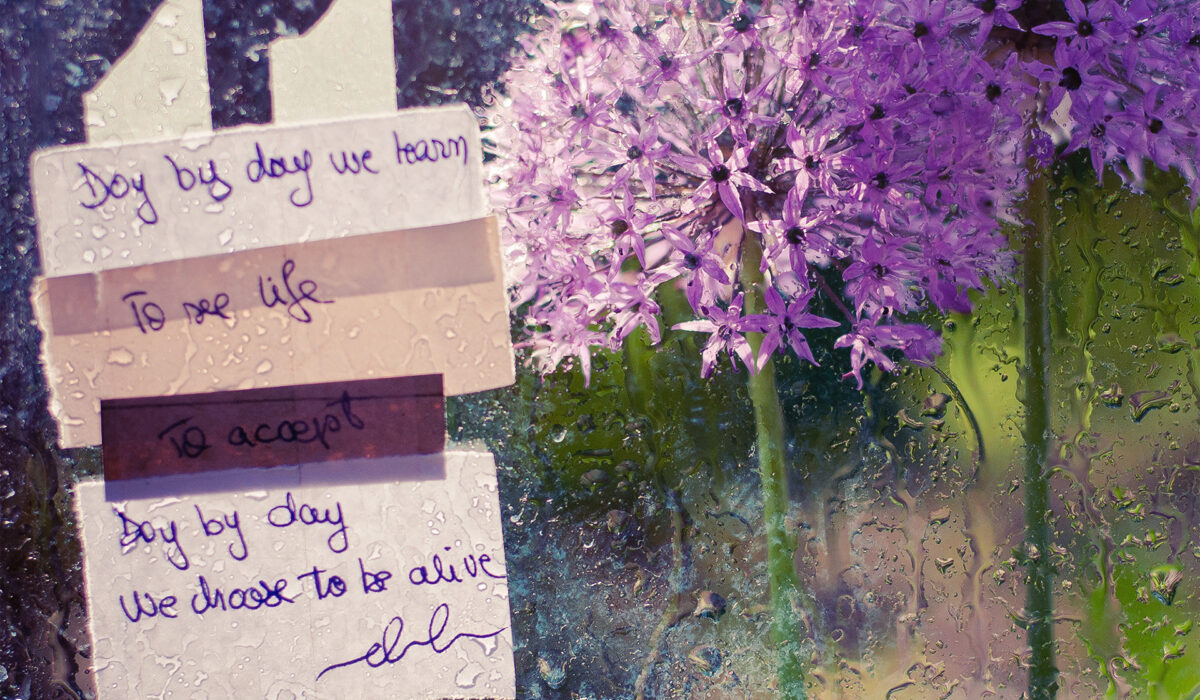 Day by day we learn
To see life
To accept
Day by day
we choose to be alive